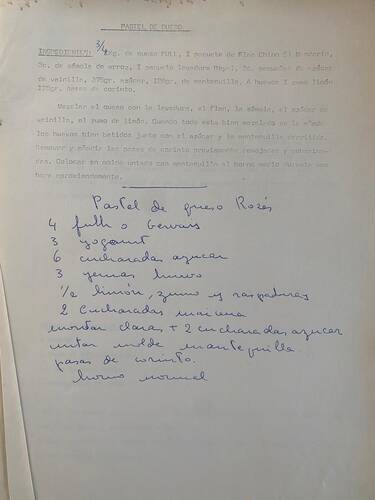 PASTEL DE QUESO
INGREDIENTES: 3/4 kg. de queso FULL, I paquete de Flan Chino El Mandarin,
2c. de sémola de arroz, I paquete levadura Royal, 2c. pequeñas de azúcar
de vainilla, 375gr. azúcar, 125gr. de mantequilla, 4 huevos I zumo limón
125gr. pasas de corinto.
Mezclar el queso con la levadura, el flan, la sémola, el azúcar de
vainilla, el zumo de limón. Cuando todo esta bien mezclado se le añade
los huevos bien batidos junto con el azúcar y la mantequilla derretida.
Remover y añadir las pasas de corinto previamente remojadas y
Colocar en molde untado con mantequilla al horno medio durante una
hora aproximadamente.
Pastel de queso Rosés
4 full o Gervais
3 yogourt
6 cucharadas azucar
3 yemas huevo
1/2 limón, zumo y raspaduras
2 Cucharadas maicena
montar claras + 2 cucharadas azucar
untar molde mantequilla
pasas de corinto.
horno normal